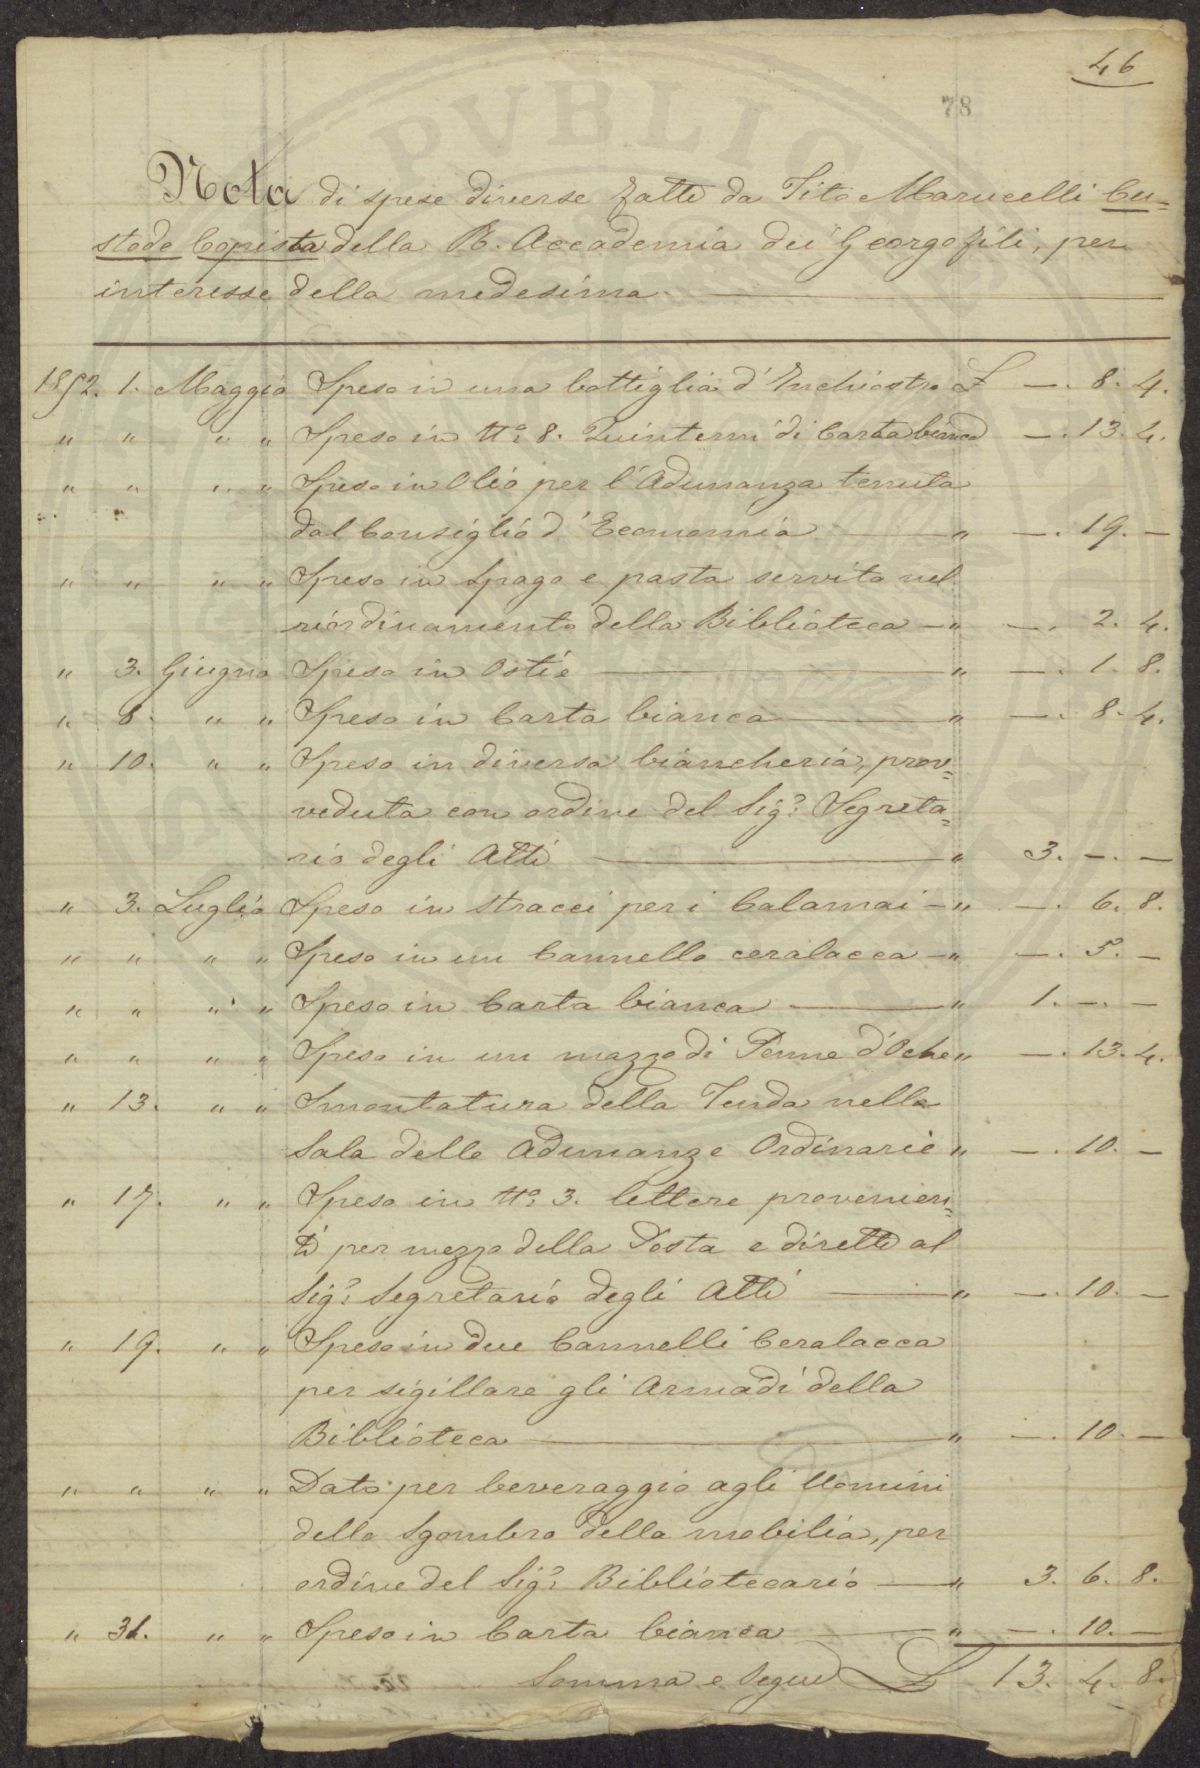 46
78
Nota di spese diverse fatte da Tito Marucelli Cu=
stode Copista della R. Accademia dei Georgofili, per
interesse della medesima
1852. 1. Maggio Speso in una bottiglia d'Inchiostro £ —. 8. 4.
" " " " Speso in No. 8. Quinterni di Carta bianca —. 13. 4.
" " " " Speso in Olio per l'Adunanza tenuta
dal Consiglio d'Economia " —. 19. —
" " " " Speso in Spago e pasta servita nel
riordinamento della Biblioteca — " —. 2. 4.
" 3. Giugno Speso in Ostie " —. 1. 8.
" 8. " " Speso in Carta bianca " —. 8. 4.
" 10. " " Speso in diversa biancheria, prov=
veduta con ordine del Sigr. Segreta=
rio degli Atti " 3. —. —
" 3. Luglio Speso in stracci per i Calamai — " —. 6. 8.
" " " " Speso in un Cannello ceralacca — " —. 5. —
" " " " Speso in Carta bianca " 1. —. —
" " " " Speso in un mazzo di Penne d'Oche " —. 13. 4.
" 13. " " Smontatura della Tenda nella
Sala delle Adunanze Ordinarie " —. 10. —
" 17. " " Speso in No. 3. lettere provenien=
ti per mezzo della Posta e dirette al
Sigr. Segretario degli Atti " —. 10. —
" 19. " " Speso in due Cannelli Ceralacca
per sigillare gli Armadi della
Biblioteca " —. 10. —
" " " " Dato per beveraggio agli Uomini
dello Sgombro della mobilia, per
ordine del Sigr. Bibliotecario — " 3. 6. 8.
" 31. " " Speso in Carta bianca " —. 10. —
Somma e segue £ 13. 4. 8.